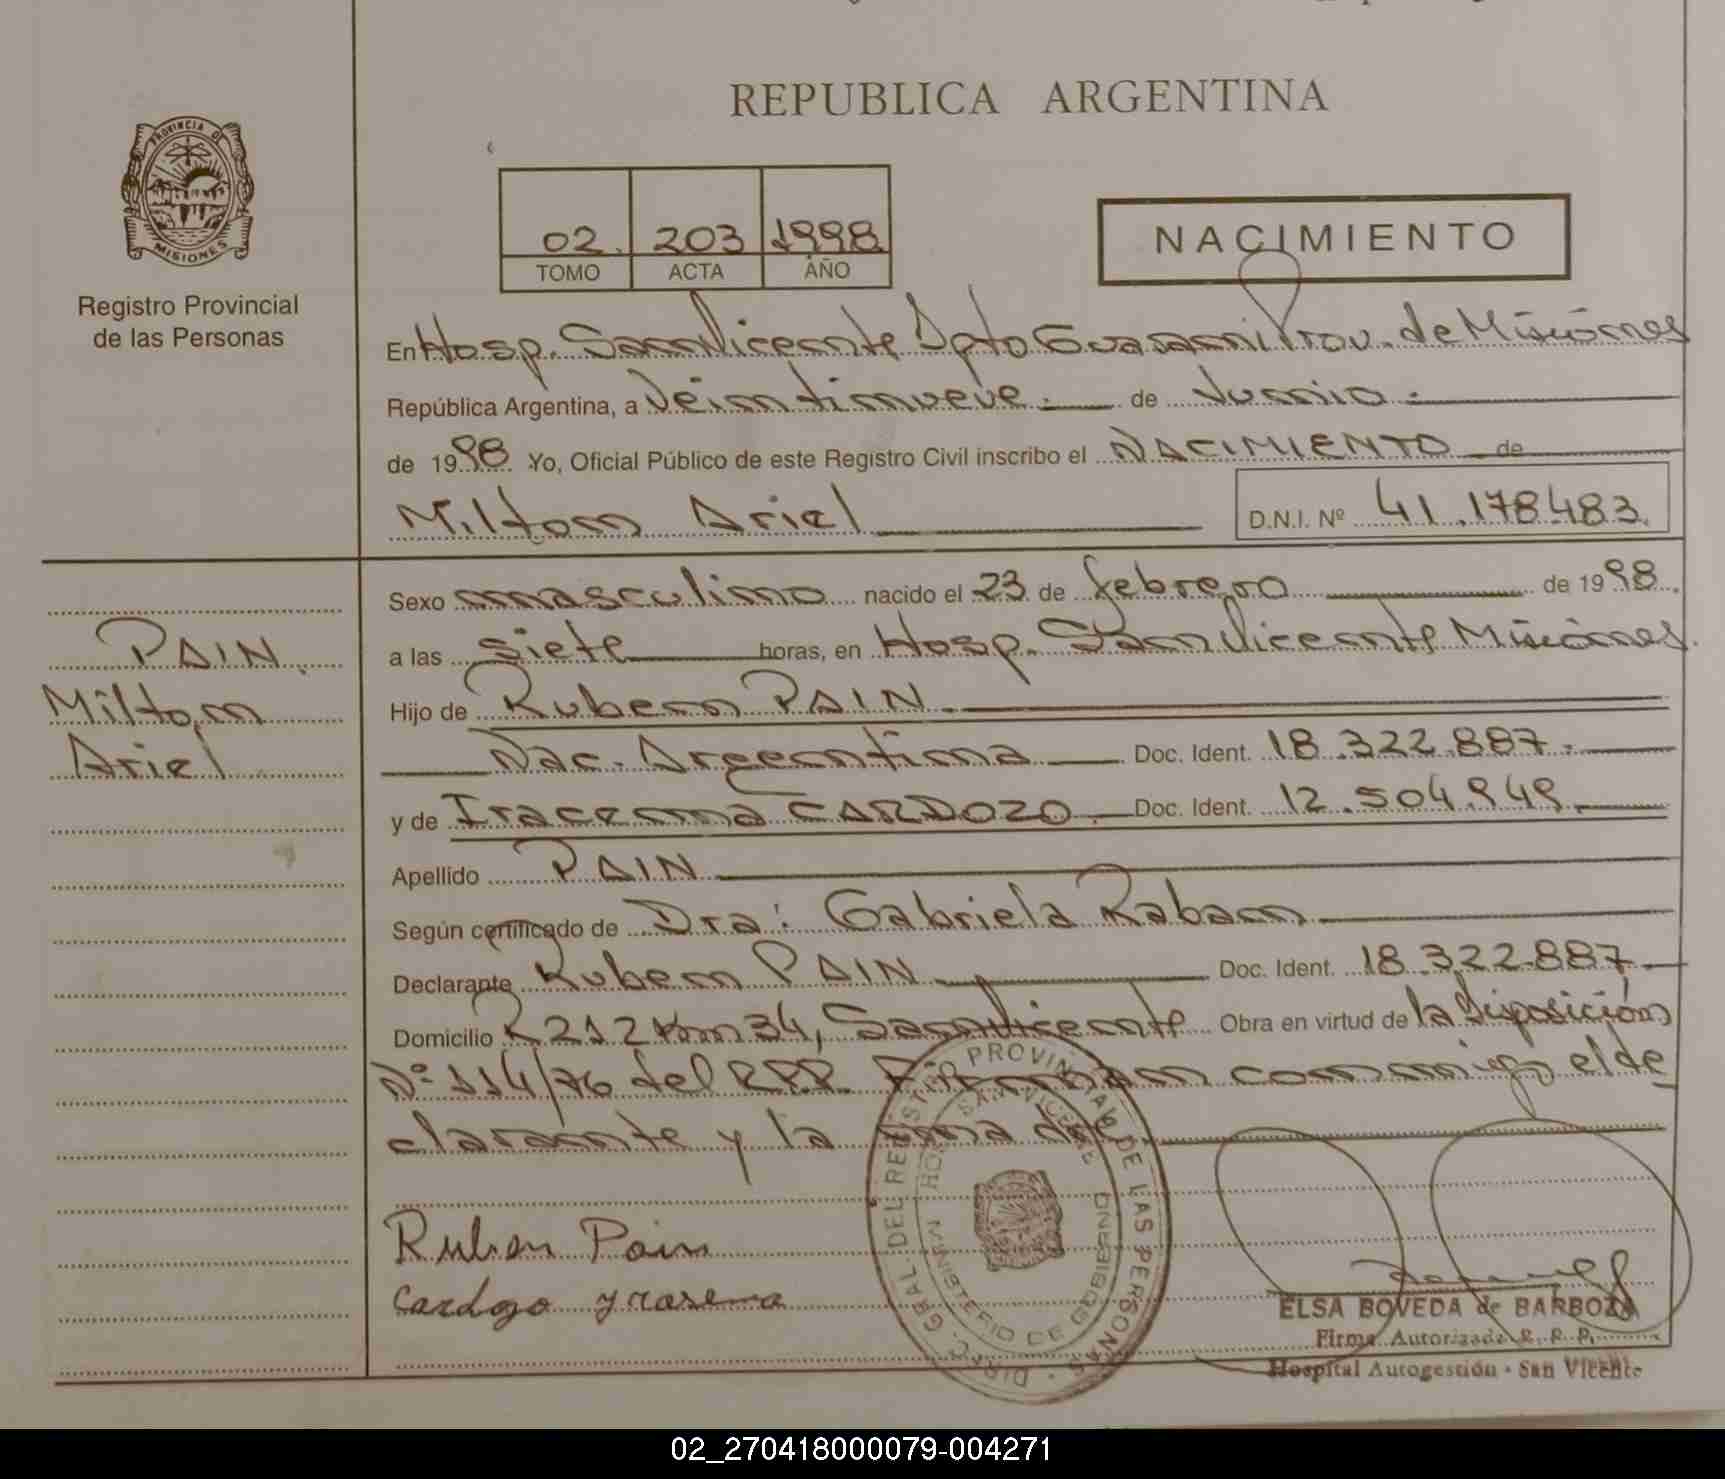 REPUBLICA ARGENTINA
PROVINCIA D
MISIONES
Registro Provincial
de las Personas
02. 203 1998
TOMO ACTA AÑO
NACIMIENTO
En Hosp. San Vicente Dpto Guarani Prov. de Misiones
República Argentina, a Veintinueve.- de Junio.-
de 1998 Yo, Oficial Público de este Registro Civil inscribo el NACIMIENTO de
Milton Ariel
D.N.I. Nº 41.178483.
Sexo masculino nacido el 23 de febrero de 1998.
a las siete horas, en Hosp. San Vicente Misiones.
Hijo de Ruben PAIN.
Nac. Argentina Doc. Ident. 18.322.887.-
y de Iracema CARDOZO.- Doc. Ident. 12.504.949.-
Apellido PAIN
Según certificado de Dra: Gabriela Raban
Declarante Ruben PAIN Doc. Ident. 18.322.887
Domicilio R212 Km 34, San Vicente Obra en virtud de la disposición
Nº 114/76 del R.P.P. Firman conmigo el de
clarante y la
PAIN.
Milton
Ariel
Ruben Pain
Cardozo yrasema
DIREC. GRAL. DEL REGISTRO PROVINCIAL DE LAS PERSONAS
HOSP. SAN VICENTE
MINISTERIO DE GOBIERNO
ELSA BOVEDA de BARBOZA
Firma Autorizada R. P. P.
Hospital Autogestión - San Vicente
02_270418000079-004271